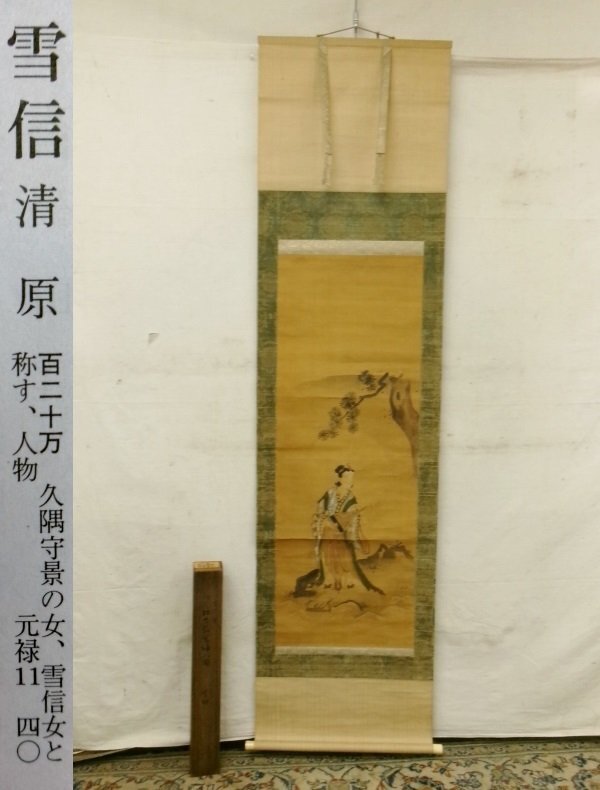 雪信 清原
百二十万 久隅守景の女、雪信女と
称す、人物 元禄11 四〇